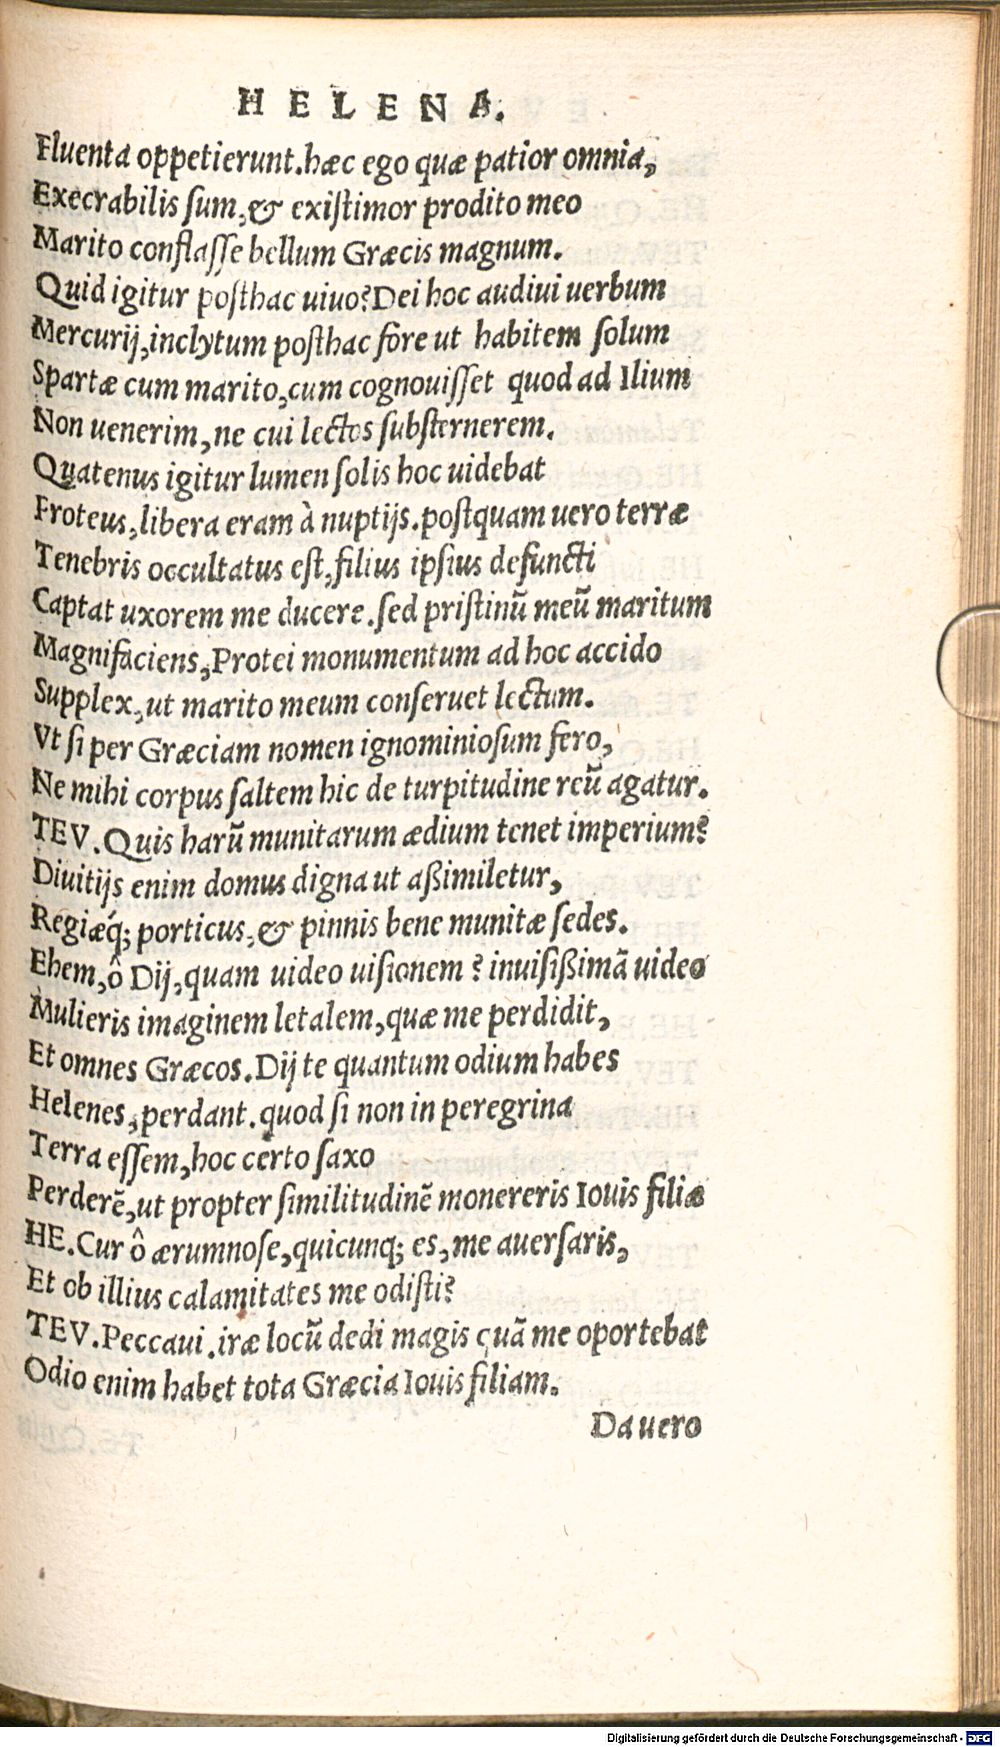 HELENA.
Fluenta oppetierunt.hæc ego quæ patior omnia,
Execrabilis sum,& exiſtimor prodito meo
Marito conflaſſe bellum Græcis magnum.
Quid igitur poſthac uiuo?Dei hoc audiui uerbum
Mercurij,inclytum poſthac fore ut habitem ſolum
Spartæ cum marito,cum cognouiſſet quod ad Ilium
Non uenerim,ne cui lectos ſubſternerem.
Quatenus igitur lumen ſolis hoc uidebat
Proteus,libera eram à nuptijs.poſtquam uero terræ
Tenebris occultatus eſt,filius ipſius defuncti
Captat uxorem me ducere.ſed priſtinũ meũ maritum
Magnifaciens,Protei monumentum ad hoc accido
Supplex,ut marito meum conſeruet lectum.
Vt ſi per Græciam nomen ignominioſum fero,
Ne mihi corpus ſaltem hic de turpitudine reũ agatur.
TEV.Quis harũ munitarum ædium tenet imperium?
Diuitijs enim domus digna ut aßimiletur,
Regiæq́; porticus,& pinnis bene munitæ ſedes.
Ehem,ô Dij,quam uideo uiſionem? inuiſißimã uideo
Mulieris imaginem letalem,quæ me perdidit,
Et omnes Græcos.Dij te quantum odium habes
Helenes,perdant.quod ſi non in peregrina
Terra eſſem,hoc certo ſaxo
Perderẽ,ut propter ſimilitudinẽ monereris Iouis filiæ
HE.Cur ô ærumnoſe,quicunq; es,me auerſaris,
Et ob illius calamitates me odiſti?
TEV.Peccaui.iræ locũ dedi magis quã me oportebat
Odio enim habet tota Græcia Iouis filiam.
Da uero
Digitalisierung gefördert durch die Deutsche Forschungsgemeinschaft - DFG